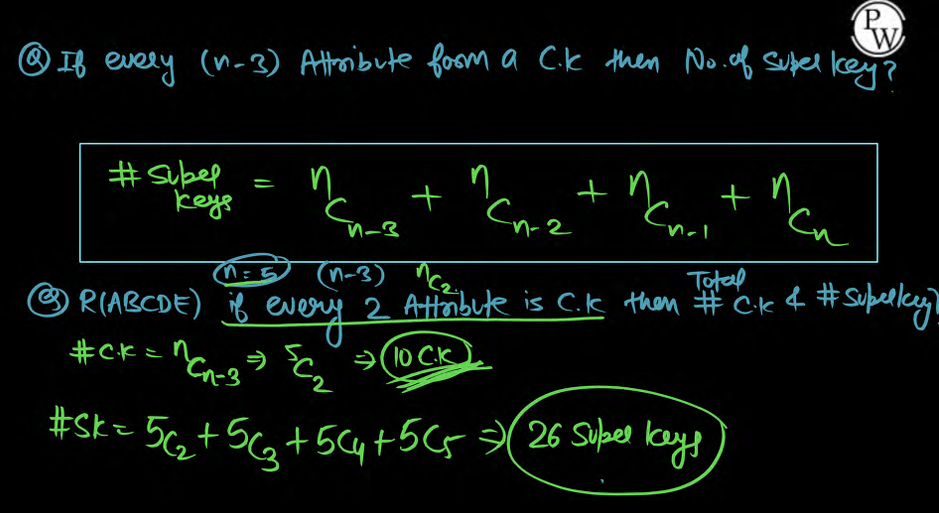 P
W
Q If every (n-3) Attribute form a C.K then No. of Super key?
# Super keys = nCn-3 + nCn-2 + nCn-1 + nCn
n=5 (n-3) nC2 Total
Q R(ABCDE) if every 2 Attribute is C.K then # C.K & # Superkey?
#C.K = nCn-3 ⇒ 5C2 ⇒ 10 C.K
#SK = 5C2 + 5C3 + 5C4 + 5C5 ⇒ 26 Super keys